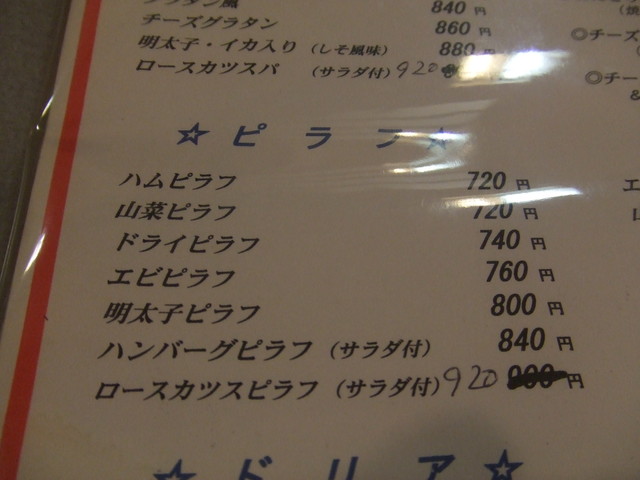 840円
チーズグラタン 860円
明太子・イカ入り（しそ風味） 880円
ロースカツスパ （サラダ付）920
◎チーズ
◎チー
☆ピラフ☆
ハムピラフ 720円
山菜ピラフ 720円
ドライピラフ 740円
エビピラフ 760円
明太子ピラフ 800円
ハンバーグピラフ（サラダ付） 840円
ロースカツスピラフ（サラダ付）920円
☆ドリア☆